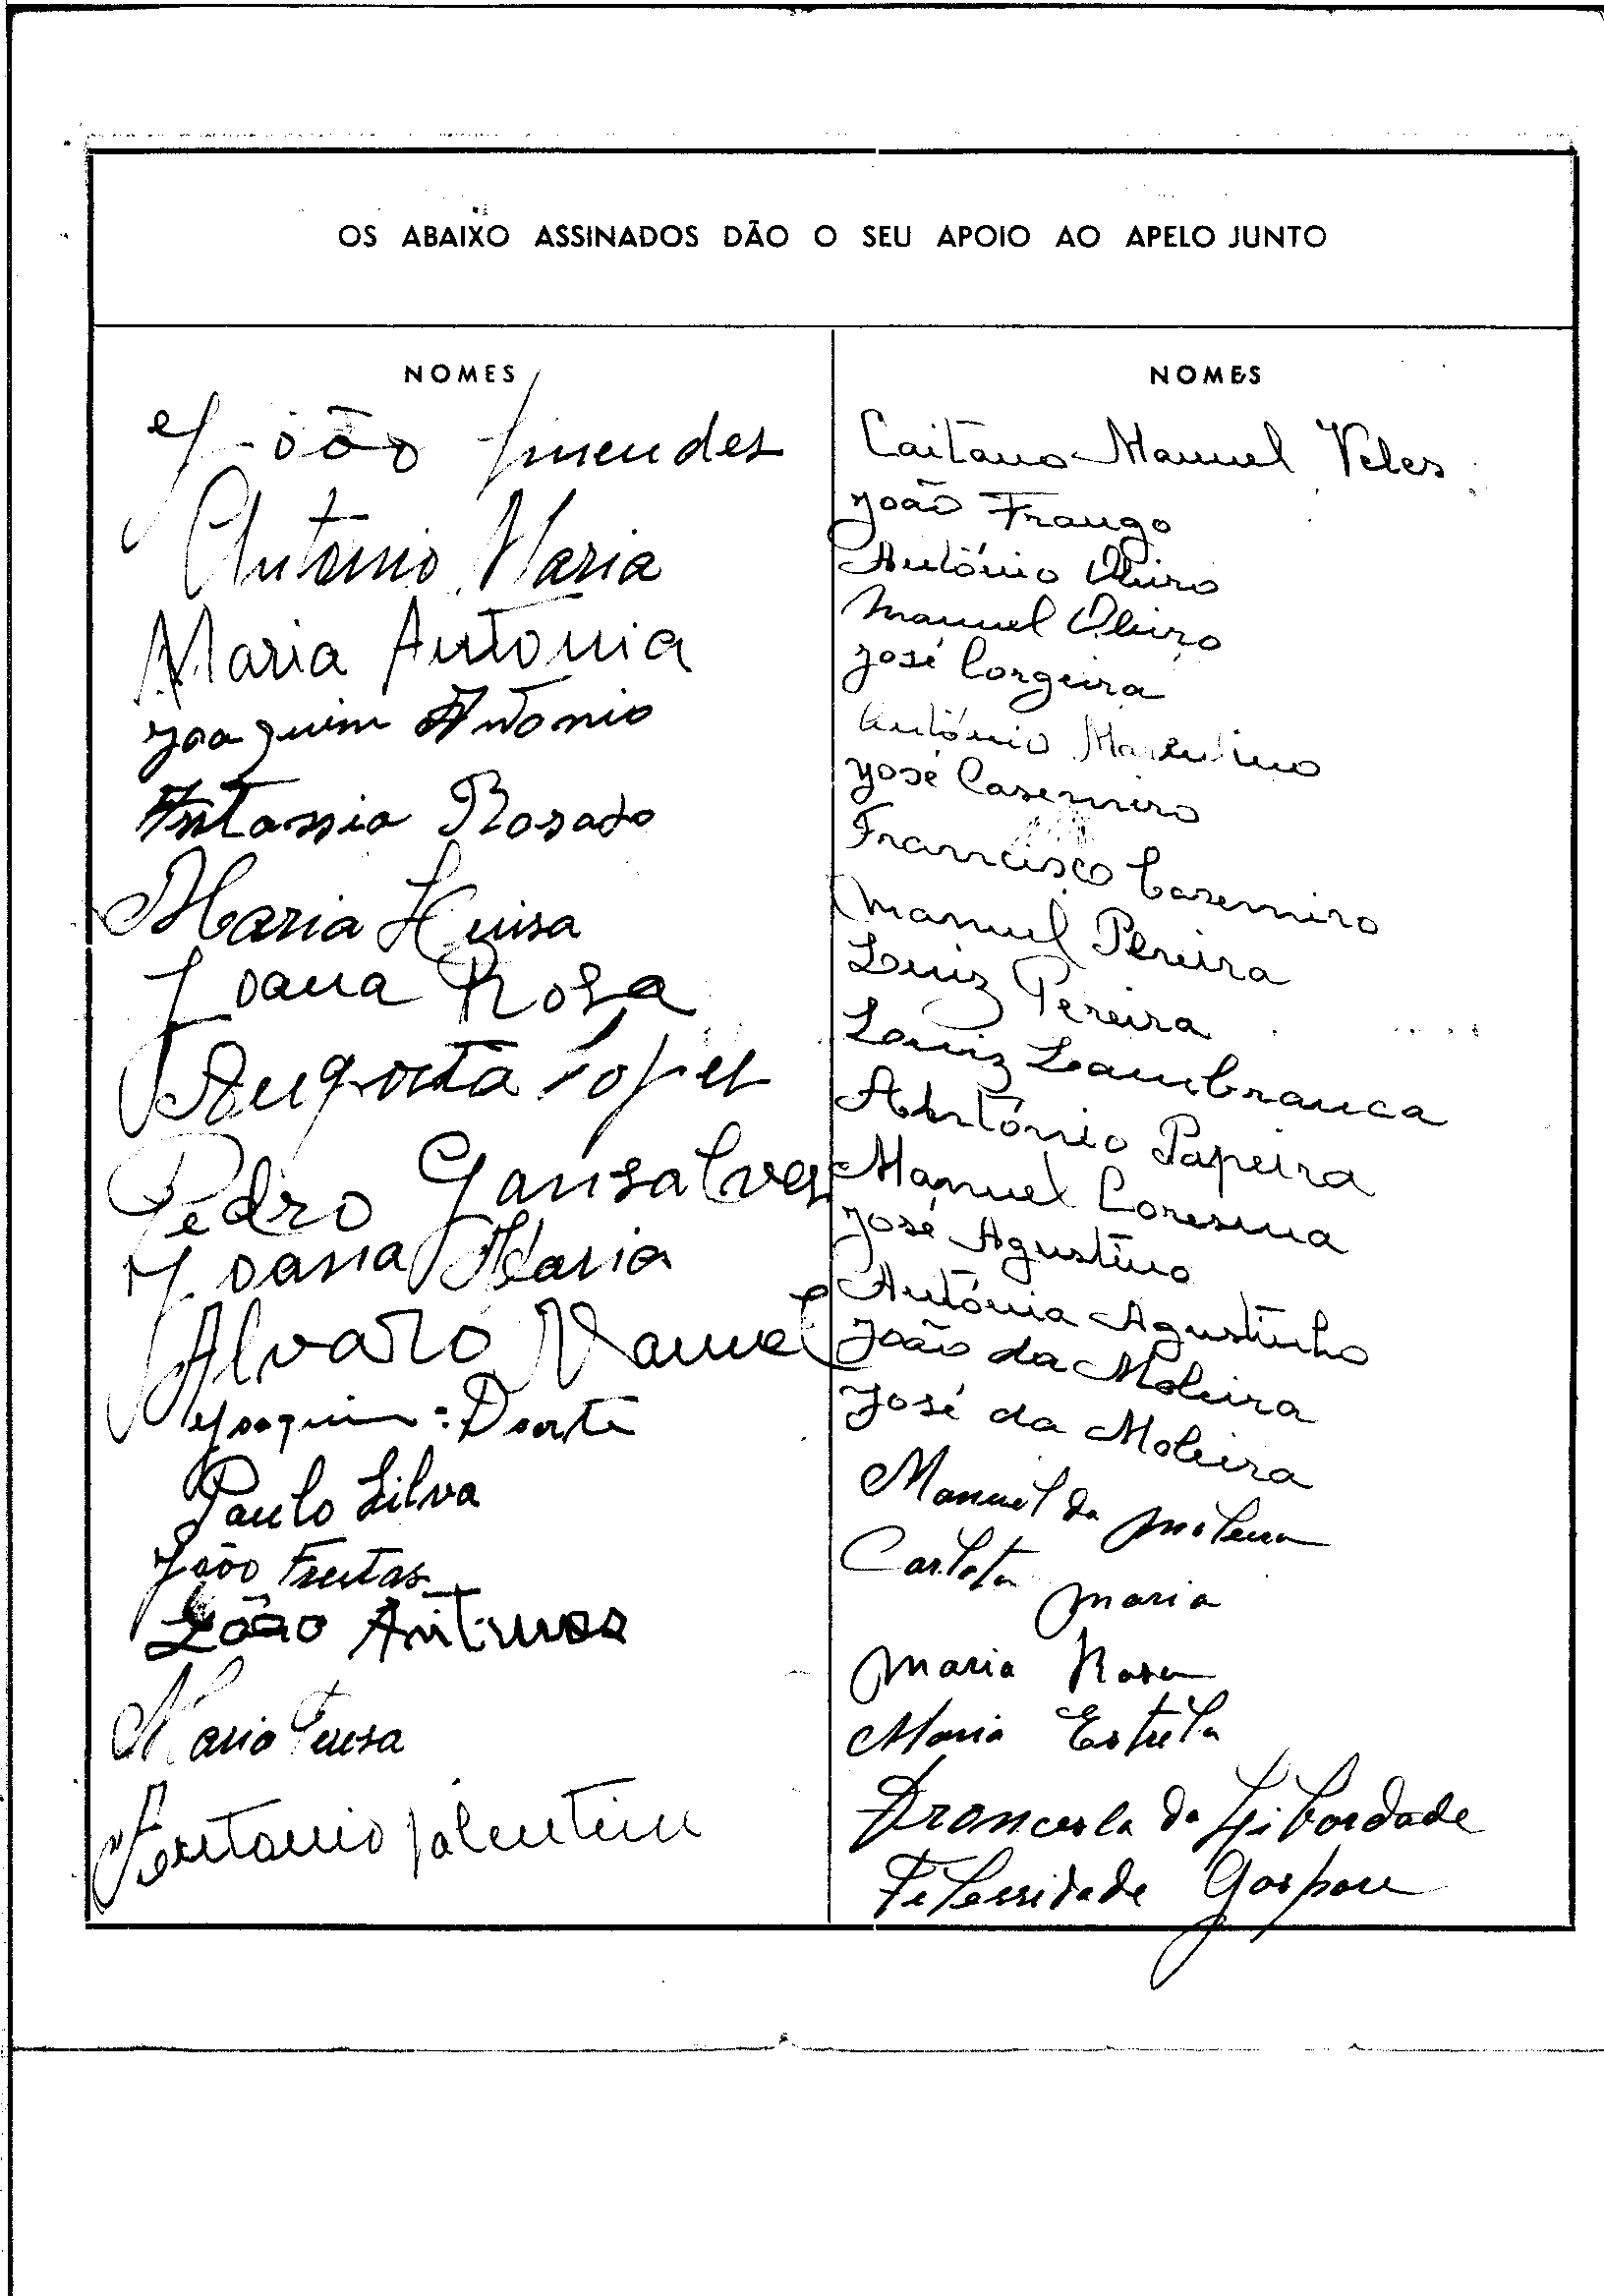 OS ABAIXO ASSINADOS DÃO O SEU APOIO AO APELO JUNTO
NOMES
João mendes
Antonio Maria
Maria Antonia
Joaquim Antonio
Antonia Rosado
Maria Luisa
Joana Rosa
Augosta Lopes
Pedro Gansalves
Joana Maria
Alvaro Manuel
Joaquim Doarte
Paulo Silva
João Freitas
João Antunes
Maria Teresa
Antonio Valentim
NOMES
Caitano Manuel Veles
João Frango
António Oleiro
Manuel Oleiro
José Corgeira
António
José Casemiro
Francisco Casemiro
Manuel Pereira
Luiz Pereira
Luiz Lambranca
António Papeira
Manuel Coresma
José Agustino
Antónia Agustinho
João da Moleira
José da Moleira
Manuel da moleira
Carlota maria
Maria Rosa
Maria Estrela
da Libordade
Felessidade Gaspar